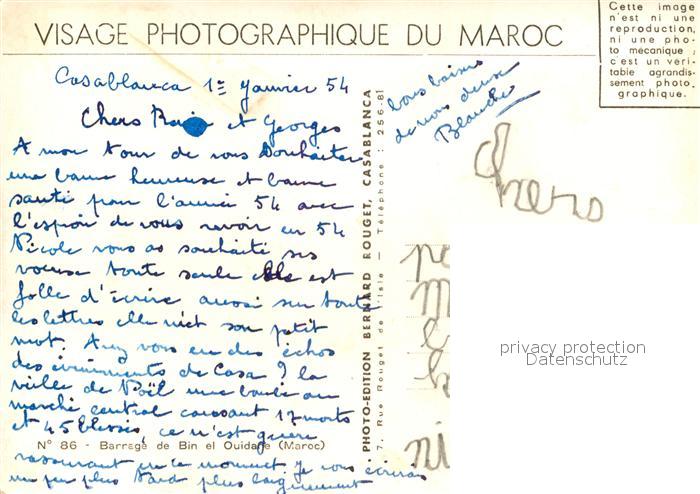 VISAGE PHOTOGRAPHIQUE DU MAROC
Cette image
n'est ni une
reproduction,
ni une pho-
to mécanique ;
c'est un véri-
table agrandis-
sement photo-
graphique.
Casablanca 1er Janvier 54
Chers et Georges
A mon tour de vous souhaiter
une bonne heureuse et bonne
santé pour l'année 54 avec
l'espoir de vous revoir en 54
Nicole vous as souhaité ses
voeux toute seule elle est
folle d'écrire aussi sur toute
les lettres elle met son petit
mot. Avez vous eu des échos
des évènements de Casa ? la
veille de Noël une bombe au
marché central causant 17 morts
et 45 blessés, ce n'est guère
rassurant en ce moment je vous écrirai
un peu plus tard plus longuement
bons baisers
de nous deux
Blanche
Chers
ni
N° 86 - Barrage de Bin el Ouidane (Maroc)
PHOTO-EDITION BERNARD ROUGET, CASABLANCA
7, Rue Rouget de l'Isle — Téléphone : 256-81
privacy protection
Datenschutz